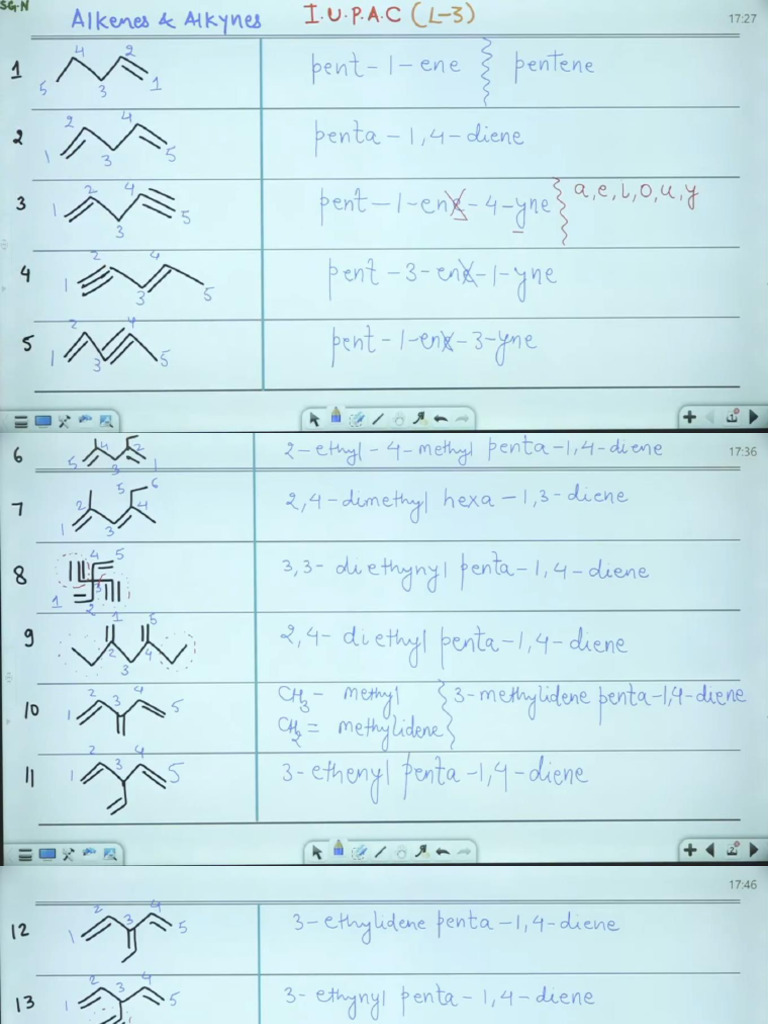 SG.N
Alkenes & Alkynes I.U.P.A.C (L-3) 17:27
1 5 4 3 2 1 pent-1-ene pentene
2 1 2 3 4 5 penta-1,4-diene
3 1 2 3 4 5 pent-1-ene-4-yne a,e,i,o,u,y
4 1 2 3 4 5 pent-3-ene-1-yne
5 1 2 3 4 5 pent-1-ene-3-yne
6 5 4 3 2 1 2-ethyl-4-methyl penta-1,4-diene 17:36
7 1 2 3 4 5 6 2,4-dimethyl hexa-1,3-diene
8 1 2 3 4 5 3,3-diethynyl penta-1,4-diene
9 1 2 3 4 5 2,4-diethyl penta-1,4-diene
10 1 2 3 4 5 CH3- methyl 3-methylidene penta-1,4-diene
CH2= methylidene
11 1 2 3 4 5 3-ethenyl penta-1,4-diene
17:46
12 1 2 3 4 5 3-ethylidene penta-1,4-diene
13 1 2 3 4 5 3-ethynyl penta-1,4-diene